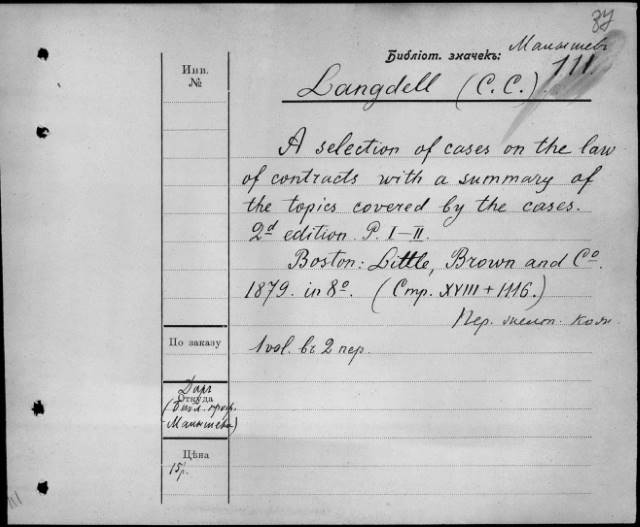 37
Малышевъ
Библіот. значекъ: 111.
Инв.
№
Langdell (C. C.)
A selection of cases on the law
of contracts with a summary of
the topics covered by the cases.
2d edition. P. I–II.
Boston: Little, Brown and Co.
1879. in 8o. (Стр. XVIII + 1116.)
Пер. кож.
По заказу
1 vol. въ 2 пер.
Даръ
Откуда
(Библ. проф.
Малышева)
Цѣна
15р.